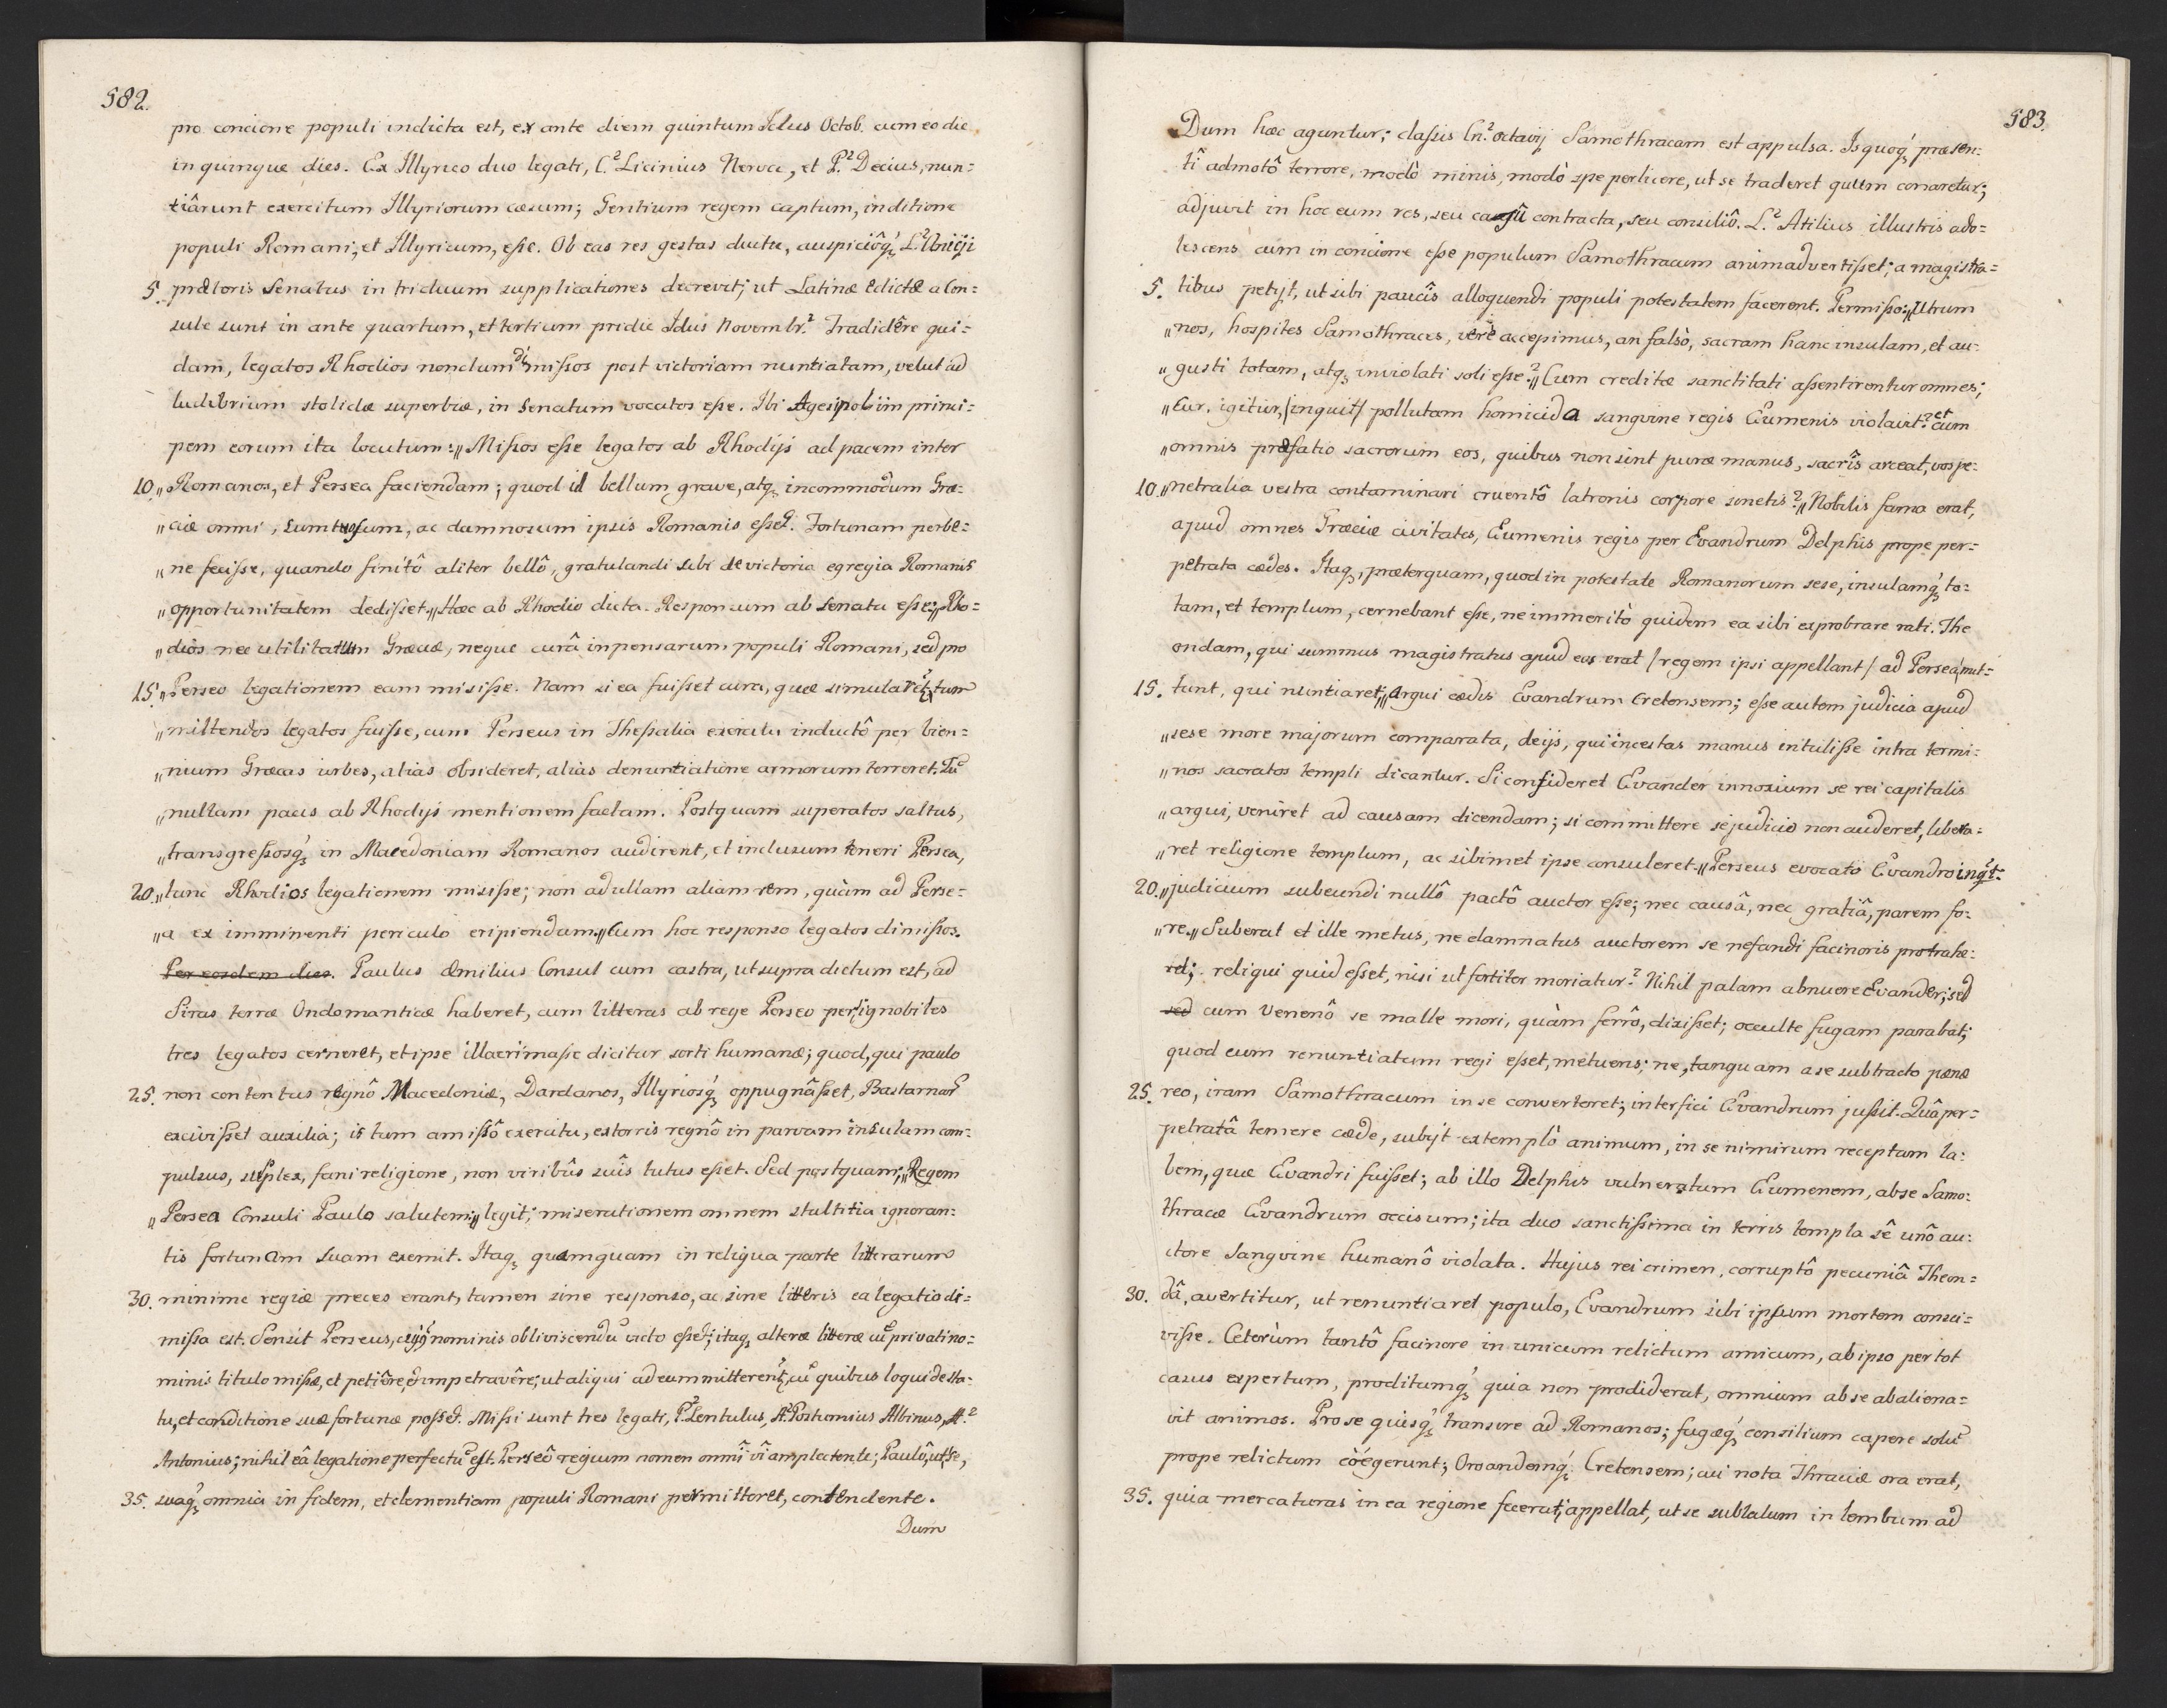 582.
pro concione populi indicta est, ex ante diem quintum Idus Octob. cum eo die
in quinque dies. Ex Illyrico duo legati, C.² Licinius Nerva, et P.² Decius, nun=
tiârunt exercitum Illyriorum cæsum; Gentium regem captum, in ditione
populi Romani; et Illyricum, esse. Ob eas res gestas ductu, auspiciôq́ꝫ L.² Anicij
5. prætoris Senatus in triduum supplicationes decrevit; ut Latinæ edictæ a Con=
sule sunt in ante quartum, et tertium pridie Idus Novembr.² Tradidêre qui=
dam, legatos Rhodios nondum dimissos post victoriam nuntiatam, velut ad
ludibrium stolidæ superbiæ, in Senatum vocatos esse. Ibi Agesipolim princi=
pem eorum ita locutum: „Missos esse legatos ab Rhodijs ad pacem inter
10. „Romanos, et Persea faciendam; quod id bellum grave, atqꝫ incommodum Græ=
„ciæ omni, sumtuosum, ac damnosum ipsis Romanis esset. Fortunam perbe=
„ne fecisse, quando finitô aliter bellô, gratulandi sibi de victoria egregia Romanis
„opportunitatem dedisset.„ Hæc ab Rhodio dicta. Responsum ab Senatu esse; „Rho=
„diôs nec utilitatum Græciæ, neque curâ inpensarum populi Romani, sed pro
15. „Perseo legationem eam misisse. Nam si ea fuisset cura, quæ simularet̃, tum
„mittendos legatos fuisse, cum Perseus in Thessalia exercitu inductô per bien=
„nium Græcas urbes, alias obsideret, alias denuntiatione armorum terreret. Tū
„nullam pacis ab Rhodijs mentionem factam. Postquam superatos saltus,
„transgressosq́ꝫ in Macedoniam Romanos audirent, et inclusum teneri Persea,
20. „tunc Rhodios legationem misisse; non ad ullam aliam rem, quàm ad Perse=
„a ex imminenti periculo eripiendum.„ Cum hoc responso legatos dimissos.
Per eosdem dies. Paulus Æmilius Consul cum castra, ut supra dictum est, ad
Siras terræ Ondomanticæ haberet, cum litteras ab rege Perseo per ignobiles
tres legatos cerneret, et ipse illacrimasse dicitur sorti humanæ; quod, qui paulo
25. non contentus regnô Macedoniæ, Dardanos, Illyriosq́ꝫ oppugnâsset, Bastarnar̃
excivisset auxilia; is tum amissô exercitu, extorris regnô in parvam insulam com=
pulsus, supplex, fani religione, non viribûs suîs tutus esset. Sed postquam; „Regem
„Persea Consuli Paulo salutem;„ legit; miserationem omnem stultitia ignoran=
tis fortunam suam exemit. Itaqꝫ quamquam in reliqua parte litterarum
30. minime regiæ preces erant, tamen sine responso, ac sine litteris ea legatio di=
missa est. Sensit Perseus, cujꝰ nominis obliviscendū victo esset; itaqꝫ alteræ litteræ cū privati no=
minis titulo missæ, et petiêre, & impetravêre; ut aliqui ad eum mitterent̃, cū quibus loqui de sta=
tu, et conditione suæ fortunæ posset. Missi sunt tres legati, P.² Lentulus, A.² Postumius Albinus, A.²
Antonius; nihil eâ legatione perfectū est. Perseô regium nomen omnî vî amplectente; Paulô, ut se,
35. suaq́ꝫ omnia in fidem, et clementiam populi Romani permitteret, contendente.
Dum
583.
Dum hæc aguntur; classis Cn.² Octavij Samothracam est appulsa. Is quoq́ꝫ præsen=
tî admotô terrore, modò minis, modò spe perlicere, ut se traderet quum conaretur;
adjuvit in hoc eum res, seu casû contracta, seu consiliô. L.² Atilius illustris ado=
lescens cum in concione esse populum Samothracum animadvertisset; a magistra=
5. tibus petijt, ut sibi paucîs alloquendi populi potestatem facerent. Permisso: „Utrum
„nos, hospites Samothraces, verè accepimus, an falsò, sacram hanc insulam, et au=
„gusti totam, atqꝫ inviolati soli esse?„ Cum creditæ sanctitati assentirentur omnes;
„Cur, igitur, /inquit/ pollutam homicida sanguine regis Eumenis violavit? et cum
„omnis præfatio sacrorum eos, quibus non sint puræ manus, sacrîs arceat, vos pe=
10. „netralia vestra contaminari cruentô latronis corpore sinetis?„ Nobilis fama erat,
apud omnes Græciæ civitates, Eumenis regis per Evandrum Delphis prope per=
petrata cædes. Itaqꝫ, præterquam, quod in potestate Romanorum sese, insulamq́ꝫ to=
tam, et templum, cernebant esse, ne immeritò quidem ea sibi exprobrare rati. The
ondam, qui summus magistratus apud eos erat /regem ipsi appellant/ ad Persea mit=
15. tunt, qui nuntiaret; „argui cædis Evandrum Cretensem; esse autem judicia apud
„sese more majorum comparata, de ijs, qui incestas manus intulisse intra termi=
„nos sacratos templi dicantur. Si confideret Evander innoxium se rei capitalis
„argui, veniret ad causam dicendam; si committere se judicio non auderet, libera=
„ret religione templum, ac sibimet ipse consuleret.„ Perseus evocato Evandro inqt:
20. „judicium subeundi nullô pactô auctor esse; nec causâ, nec gratiâ, parem fo=
„re.„ Suberat et ille metus, ne damnatus auctorem se nefandi facinoris protrahe=
ret; reliqui quid esset, nisi ut fortiter moriatur? Nihil palam abnuere Evander; sed
sed cum venenô se malle mori, quàm ferrô, dixisset; occulte fugam parabat;
quod cum renuntiatum regi esset, metuens; ne, tanquam a se subtracto pœnæ
25. reo, iram Samothracum in se converteret; interfici Evandrum jussit. Quâ per=
petratâ temere cæde, subijt extemplò animum, in se nimirum receptam la=
bem, quæ Evandri fuisset; ab illo Delphis vulneratum Eumenem, ab se Samo=
thracæ Evandrum occisum; ita duo sanctissima in terris templa sê unô au=
ctore sanguine humanô violata. Hujus rei crimen, corruptô pecuniâ Theon=
30. dâ, avertitur, ut renuntiaret populo, Evandrum sibi ipsum mortem consci=
visse. Ceterùm tantô facinore in unicum relictum amicum, ab ipso per tot
casus expertum, proditumq́ꝫ quia non prodiderat, omnium ab se abaliena=
vit animos. Pro se quisq́ꝫ transire ad Romanos; fugæq́ꝫ consilium capere solū
prope relictum cöégerunt; Oroandemq́ꝫ Cretensem; cui nota Thraciæ ora erat,
35. quia mercaturas in ea regione fecerat; appellat, ut se sublatum in lembum ad